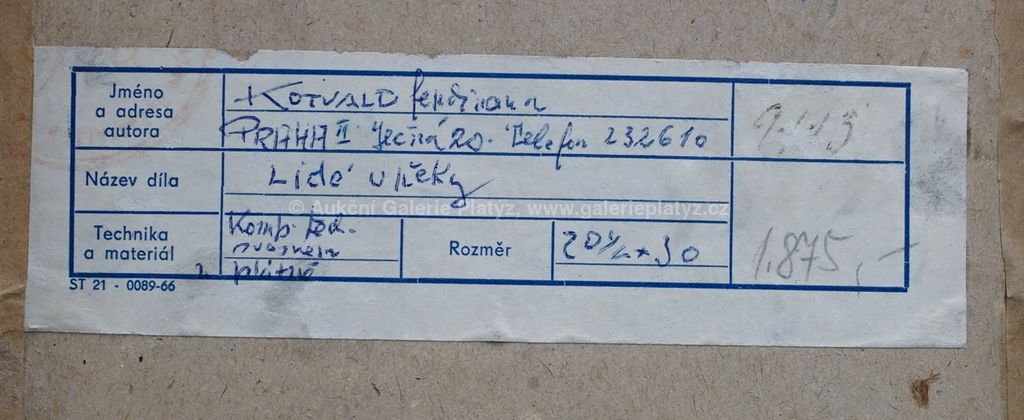 Jméno
a adresa
autora
KOTVALD Ferdinand
PRAHA II Ječná 20. Telefon 232610
Název díla
Lidé u řeky
© Aukční Galerie Platýz, www.galerieplatyz.cz
Technika
a materiál
Komb. tech.
plátně
Rozměr
20½ x 30
1.875,-
ST 21 - 0089-66